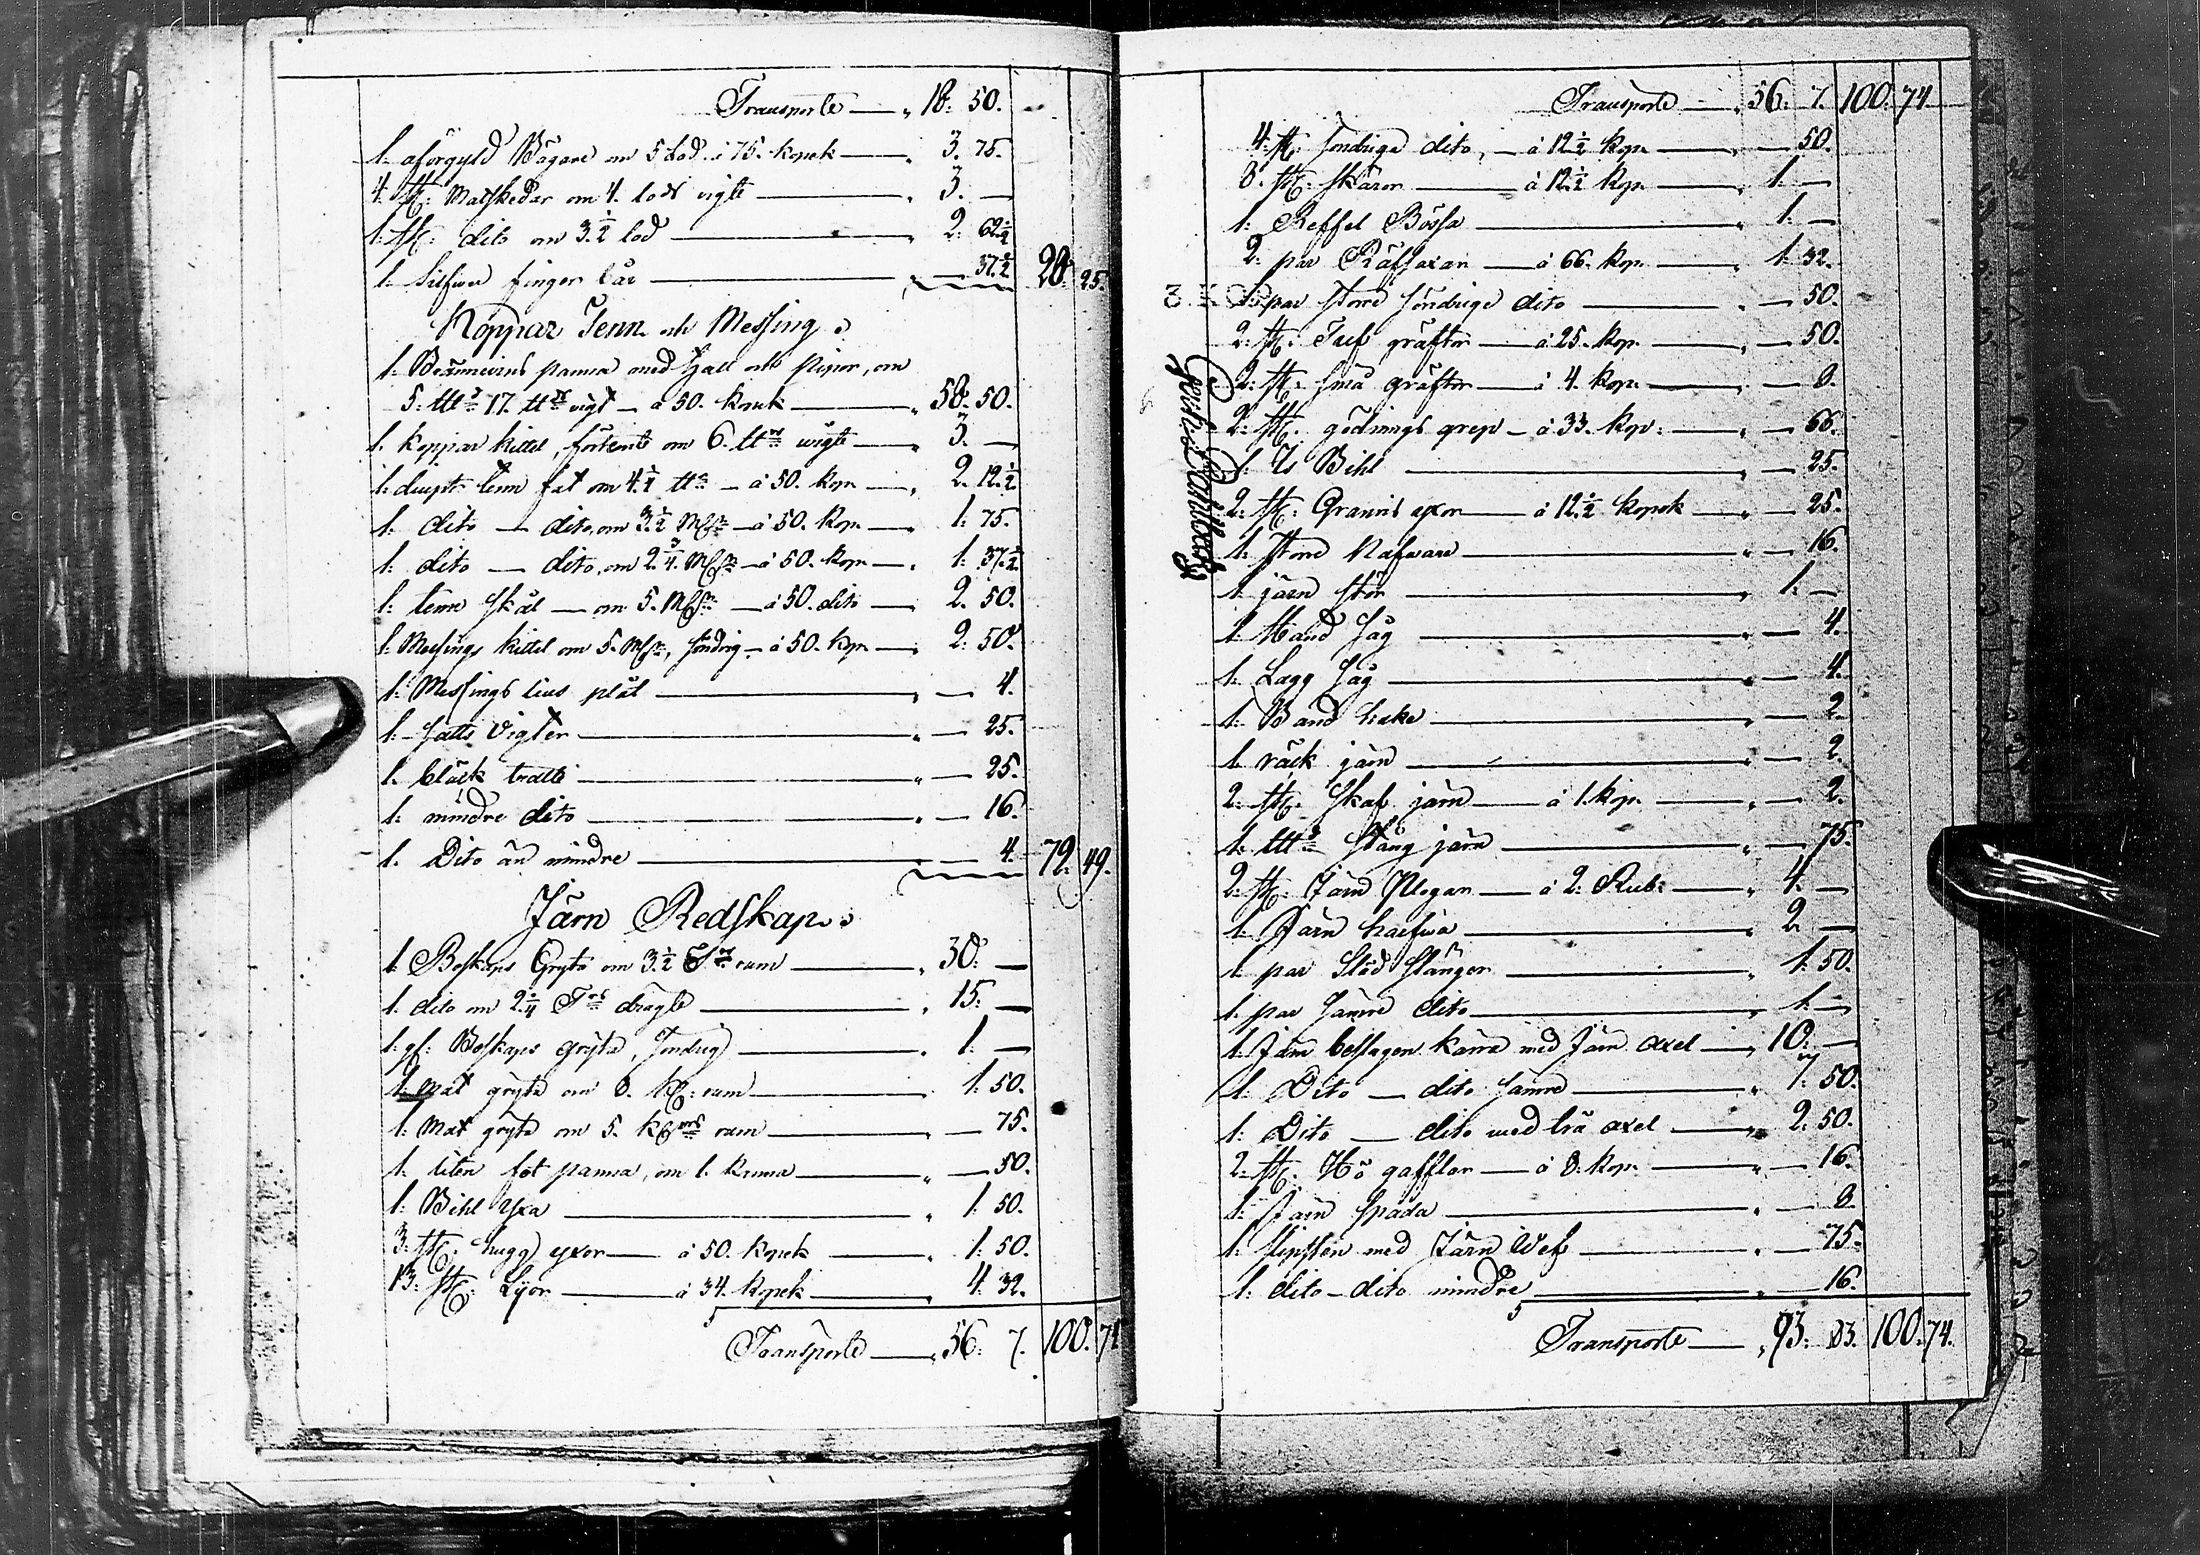 Transporte — 18. 50.
1. oförgyld Bägare om 5 Lod à 75. kopek — 3. 75.
4. St. Matskedar om 4. lods vigt — 3. —
1. St. dito om 3.½ lod — 2. 62½
1. Silfver finger — 37.½ 28. 25
Koppar Tenn och Messing
1. Bränvins panna med Hatt och pipor, om
5. 17. vigt — à 50. kopek — 58. 50.
1. koppar kittel, förtent om 6. vigt — 3. —
1. diupt tenn fat om 4.¼ — à 50. kop. — 2. 12.½
1. dito — dito, om 3.½ — à 50. kop. — 1. 75.
1. dito — dito, om 2.¾. — à 50. kop. — 1. 37.½
1. tenn skål — om 5. — à 50. dito — 2. 50.
1. Messings kittel om 5. söndrig — à 50. kop. — 2. 50.
1. Messings lius plåt — 4.
1. satts Vigter — 25.
1. bläck tratt — 25.
1. mindre dito — 16.
1. Dito än mindre — 4. 72. 49.
Järn Redskap
1. Boskaps Gryta om 3.½ rum — 30. —
1. dito om 2.¾ drägt — 15. —
1. gl. Boskaps gryta, söndrig — 1. —
1. mat gryta om 8. rum — 1. 50.
1. Mat gryta om 5. rum — 75.
1. liten fot panna, om 1. kanna — 50.
1. Bihl Yxa — 1. 50.
3. St. hugg yxor — à 50. kopek — 1. 50.
13. St. Lijor — à 34. kopek — 4. 32.
Transporte — 56. 7. 100. 74
Transporte — 56. 7. 100. 74
4. St. söndriga dito, — à 12½ kop. — 50.
8. St. skäror — à 12.½ kop. — 1. —
1. Reffel Bössa — 1. —
2. par Räfsaxar — à 66. kop. — 1. 32.
1. par större söndriga dito — 50.
2. St. Torf gräftor — à 25. kop. — 50.
2. St. små gräftor — à 4. kop. — 8.
2. St. gödnings grep — à 33. kop. — 66.
1. Is Bihl — 25.
2. St. — à 12.½ kopek — 25.
1. större Nafware — 16.
1. järn stör — 1. —
1. Hand såg — 4.
1. Lagg såg — 4.
1. Band hake — 2.
1. räck järn — 2.
2. St. Skaf järn — à 1. kop. — 2.
1. Stång järn — 75.
2. St. Järn Plogar — à 2. Rub. — 4. —
1. Järn harfwa — 2. —
1. par Släd stänger — 1. 50.
1. par sämre dito — 1. —
1. Järn beslagen kärra med Järn axel — 10. —
1. Dito — dito sämre — 7. 50.
1. Dito — dito med trä axel — 2. 50.
2. St. Hö gafflar — à 8. kop. — 16.
1. Järn spada — 8.
1. slipsten med Järn Vef — 75.
1. dito — dito mindre — 16.
Transporte — 93. 83. 100. 74.